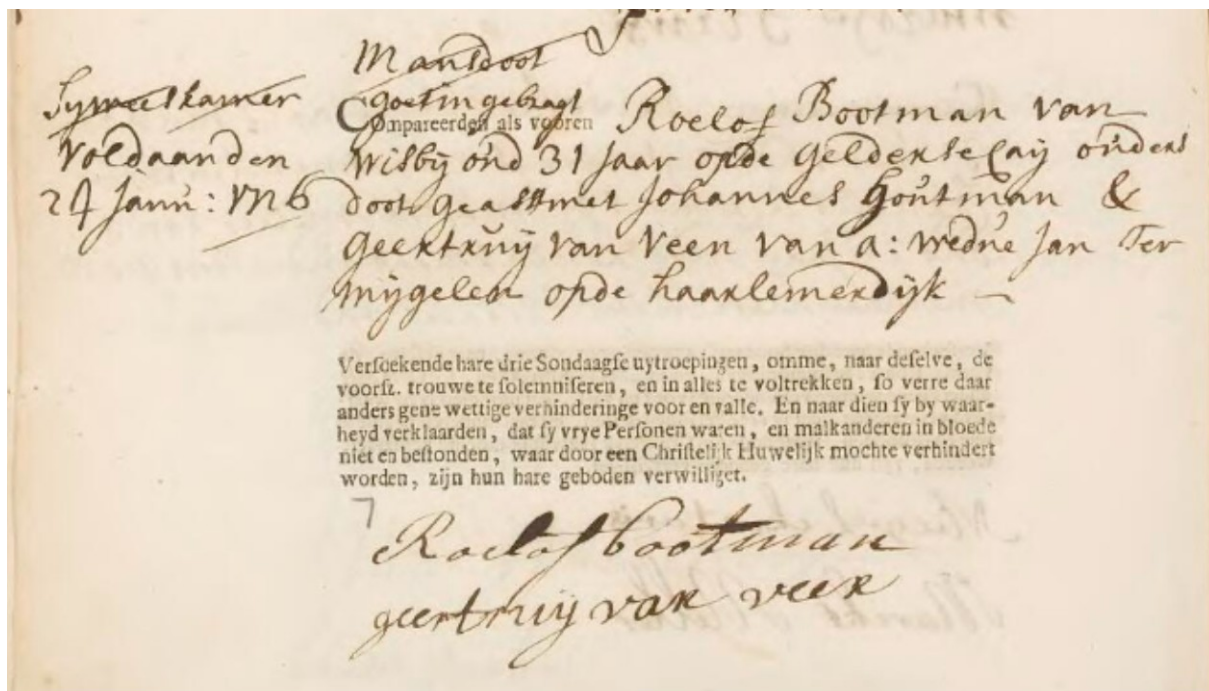 Mansdoot
goet ingebragt
Sijweeskamer
voldaan den
24 Janu: 1726
Compareerden als vooren Roelof Bootman van
wisbij oud 31 Jaar op de gelderse Caij ouders
doot geasst met Johannes Houtman &
geertruij van Veen van a: wedue Jan Ter
mijgelen op de haarlemerdijk
Versoekende hare drie Sondaagse uytroepingen, omme, naar deselve, de
voorsz. trouwe te solemniseren, en in alles te voltrekken, so verre daar
anders gene wettige verhinderinge voor en valle. En naar dien sy by waar-
heyd verklaarden, dat sy vrye Personen waren, en malkanderen in bloede
niet en bestonden, waar door een Christelijk Huwelijk mochte verhindert
worden, zijn hun hare geboden verwilliget.
Roelof bootman
geertruij van veen